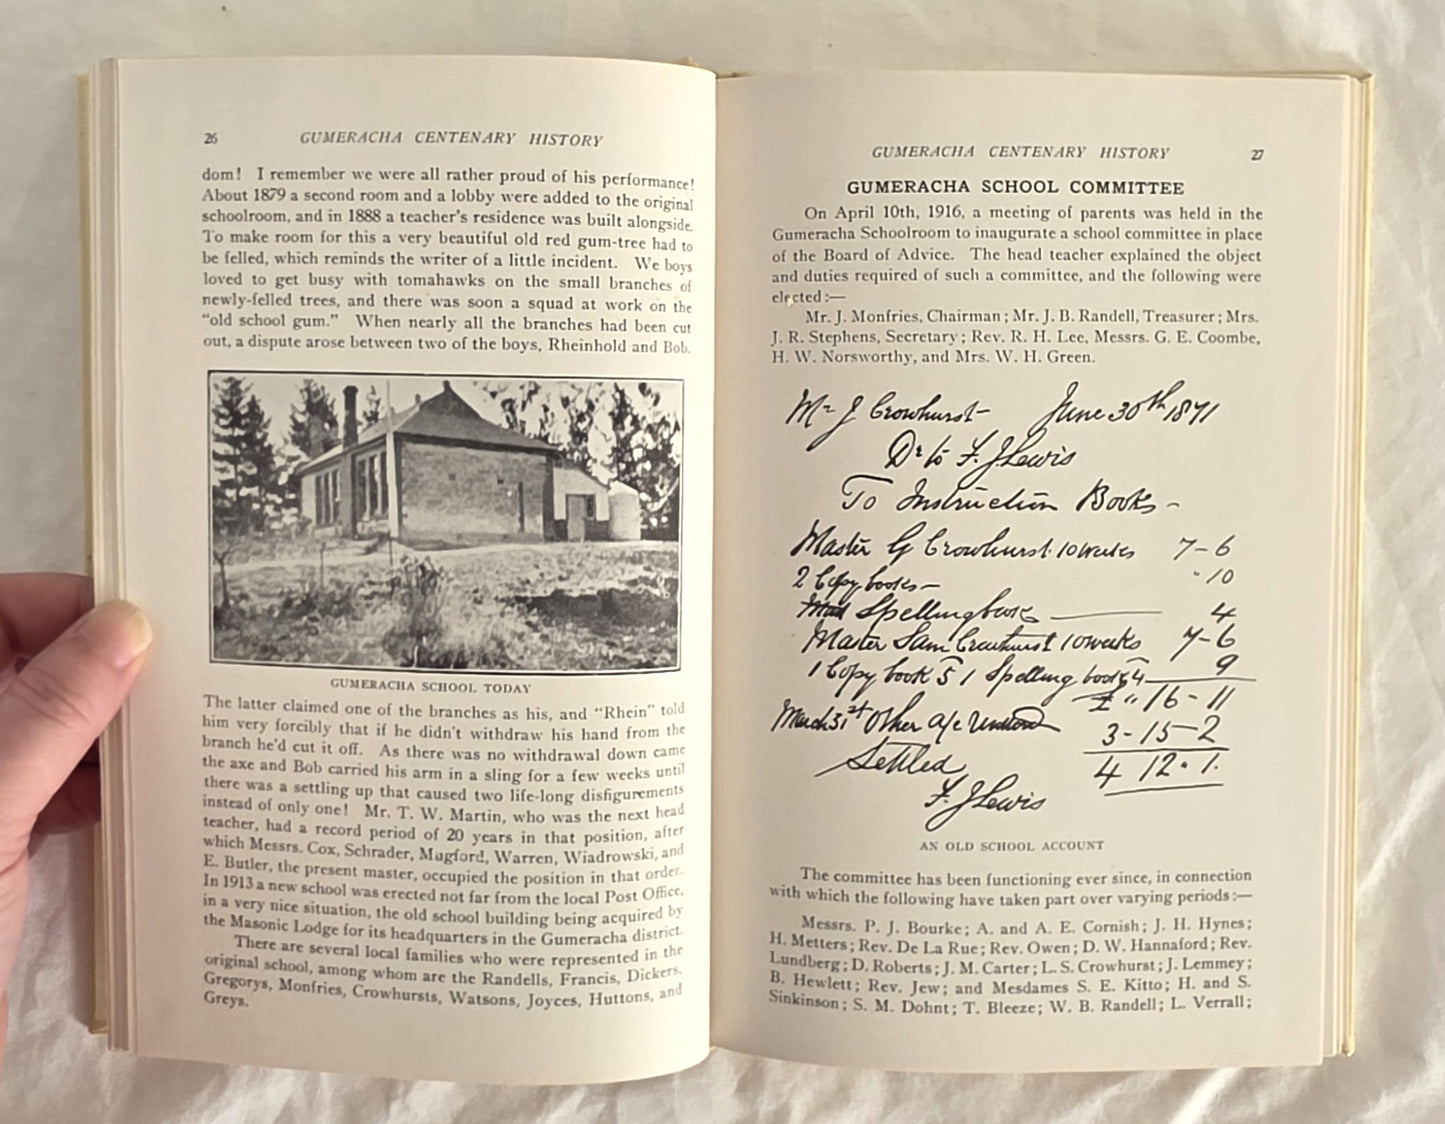 26 GUMERACHA CENTENARY HISTORY
dom! I remember we were all rather proud of his performance!
About 1879 a second room and a lobby were added to the original
schoolroom, and in 1888 a teacher's residence was built alongside.
To make room for this a very beautiful old red gum-tree had to
be felled, which reminds the writer of a little incident. We boys
loved to get busy with tomahawks on the small branches of
newly-felled trees, and there was soon a squad at work on the
"old school gum." When nearly all the branches had been cut
out, a dispute arose between two of the boys, Rheinhold and Bob.
GUMERACHA SCHOOL TODAY
The latter claimed one of the branches as his, and "Rhein" told
him very forcibly that if he didn't withdraw his hand from the
branch he'd cut it off. As there was no withdrawal down came
the axe and Bob carried his arm in a sling for a few weeks until
there was a settling up that caused two life-long disfigurements
instead of only one! Mr. T. W. Martin, who was the next head
teacher, had a record period of 20 years in that position, after
which Messrs. Cox, Schrader, Mugford, Warren, Wiadrowski, and
E. Butler, the present master, occupied the position in that order.
In 1913 a new school was erected not far from the local Post Office,
in a very nice situation, the old school building being acquired by
the Masonic Lodge for its headquarters in the Gumeracha district.
There are several local families who were represented in the
original school, among whom are the Randells, Francis, Dickers,
Gregorys, Monfries, Crowhursts, Watsons, Joyces, Huttons, and
Greys.
GUMERACHA CENTENARY HISTORY 27
GUMERACHA SCHOOL COMMITTEE
On April 10th, 1916, a meeting of parents was held in the
Gumeracha Schoolroom to inaugurate a school committee in place
of the Board of Advice. The head teacher explained the object
and duties required of such a committee, and the following were
elected:—
Mr. J. Monfries, Chairman; Mr. J. B. Randell, Treasurer; Mrs.
J. R. Stephens, Secretary; Rev. R. H. Lee, Messrs. G. E. Coombe,
H. W. Norsworthy, and Mrs. W. H. Green.
Mr J Crowhurst- June 30th 1871
Dr to F. J Lewis
To Instruction Books -
Master G Crowhurst 10 weeks 7-6
2 Copy books - " 10
Spelling book 4
Master Sam Crowhurst 10 weeks 7-6
1 Copy book 5 1 Spelling book 4 9
£ " 16 - 11
March 31st Other a/c 3-15-2
Settled 4 12 . 1.
F. J Lewis
AN OLD SCHOOL ACCOUNT
The committee has been functioning ever since, in connection
with which the following have taken part over varying periods:—
Messrs. P. J. Bourke; A. and A. E. Cornish; J. H. Hynes;
H. Metters; Rev. De La Rue; Rev. Owen; D. W. Hannaford; Rev.
Lundberg; D. Roberts; J. M. Carter; L. S. Crowhurst; J. Lemmey;
B. Hewlett; Rev. Jew; and Mesdames S. E. Kitto; H. and S.
Sinkinson; S. M. Dohnt; T. Bleeze; W. B. Randell; L. Verrall;